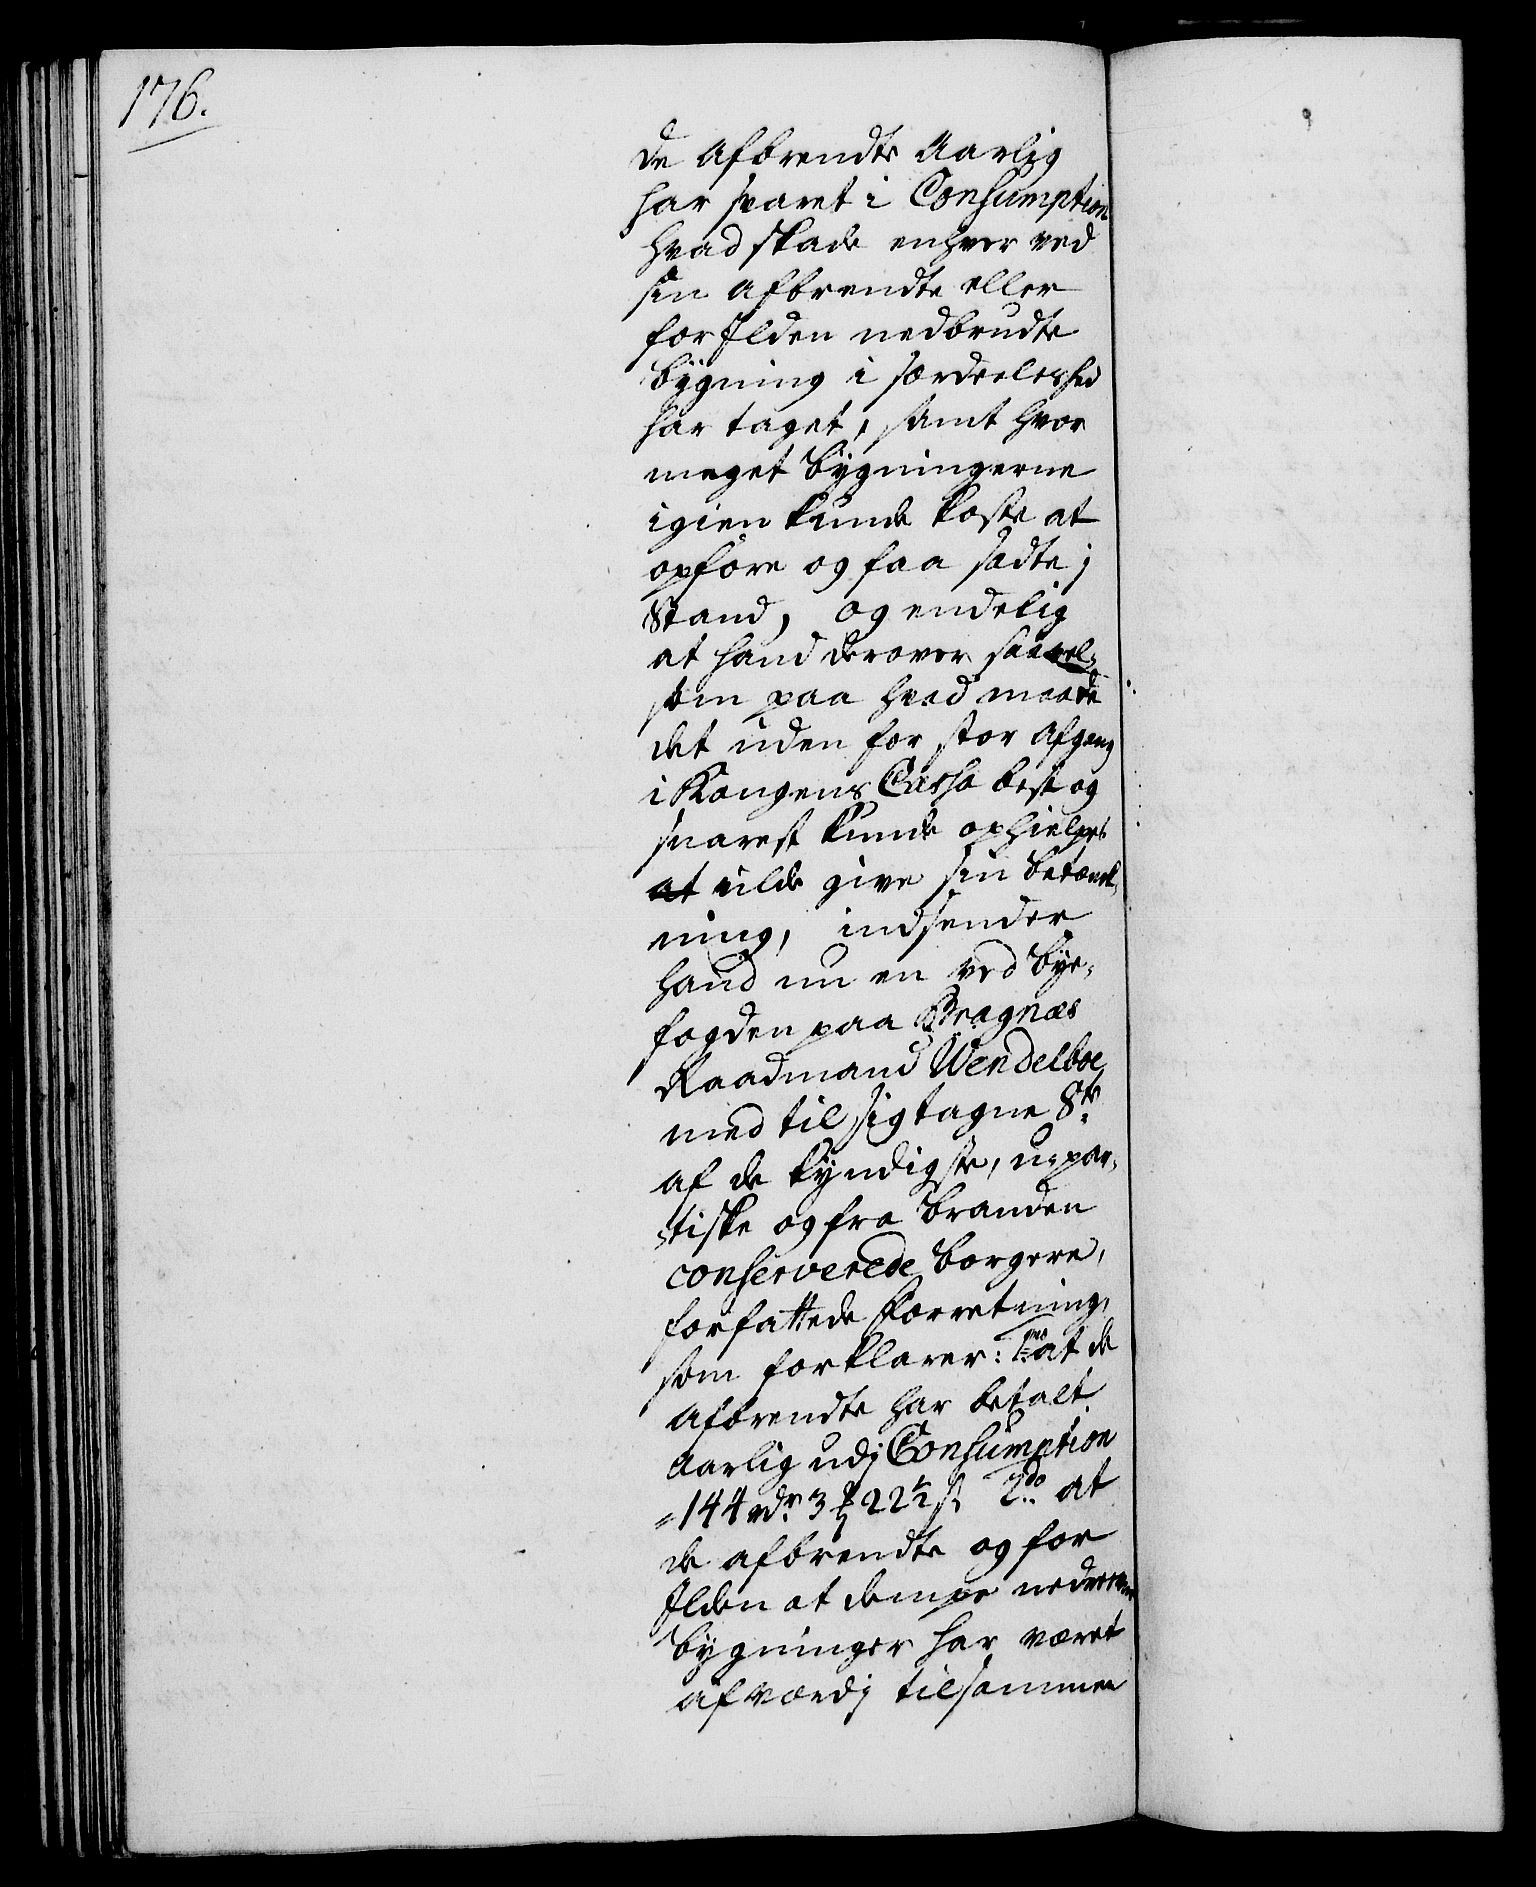 176.
de afbrendte Aarlig
har svaret i Consumption
hvad skade enhver ved
sin afbrendte eller
for Ilden nedbrudte
bygning i særdeeleshed
har taget, samt hvor
meget bygningerne
igien kunde koste at
opføre og faa sadte i
Stand, og endelig
at hand derover saavel-
som paa hvad maade
det uden for stor Afgang
i Kongens Cassa best og
snarest kunde ophielpes
at vilde give sin betænk-
ning, indsender
hand nu en ved bye-
fogden paa Bragnæs
Raadmand Wendelboe
med til sig tagne 8te
af de kyndigste, u-par-
tiske og fra branden
conserverede borgere,
forfattede Forretning,
som forklarer: 1mo at de
afbrendte har betalt
Aarlig udj Consumption
144 rdr. 3 ℔ 22½ s. 2do at
de afbrendte og for
Ilden at dempe nedrevne
bygninger har været
af værdj tilsammen